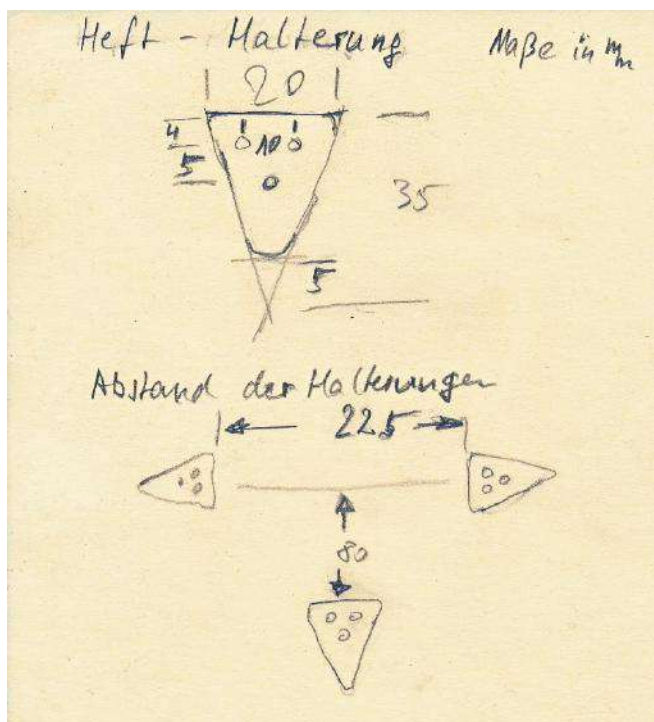 Heft - Halterung Maße in mm
20
4
10
5
35
5
Abstand der Halterungen
225
80